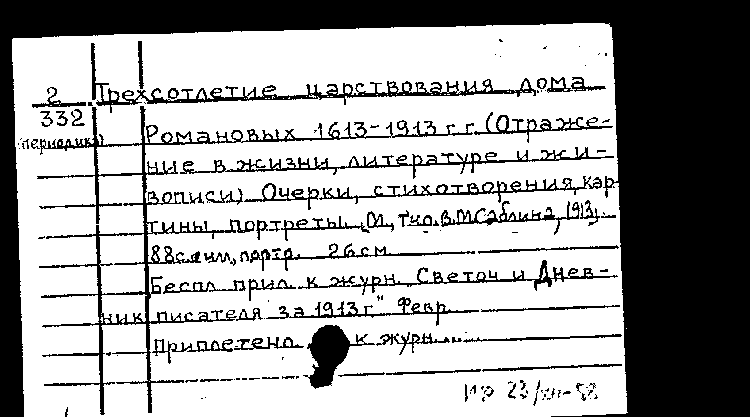 2 Трехсотлетие царствования дома
332
(периодика) Романовых 1613-1913 г.г. (Отраже-
ние в жизни, литературе и жи-
вописи) Очерки, стихотворения, кар-
тины, портреты. М., т-во В.М.Саблина, 1913.
88с. с илл., портр. 26 см
Беспл. прил. к журн. Светоч и Днев-
ник писателя за 1913 г." Февр.
Приплетено к журн.